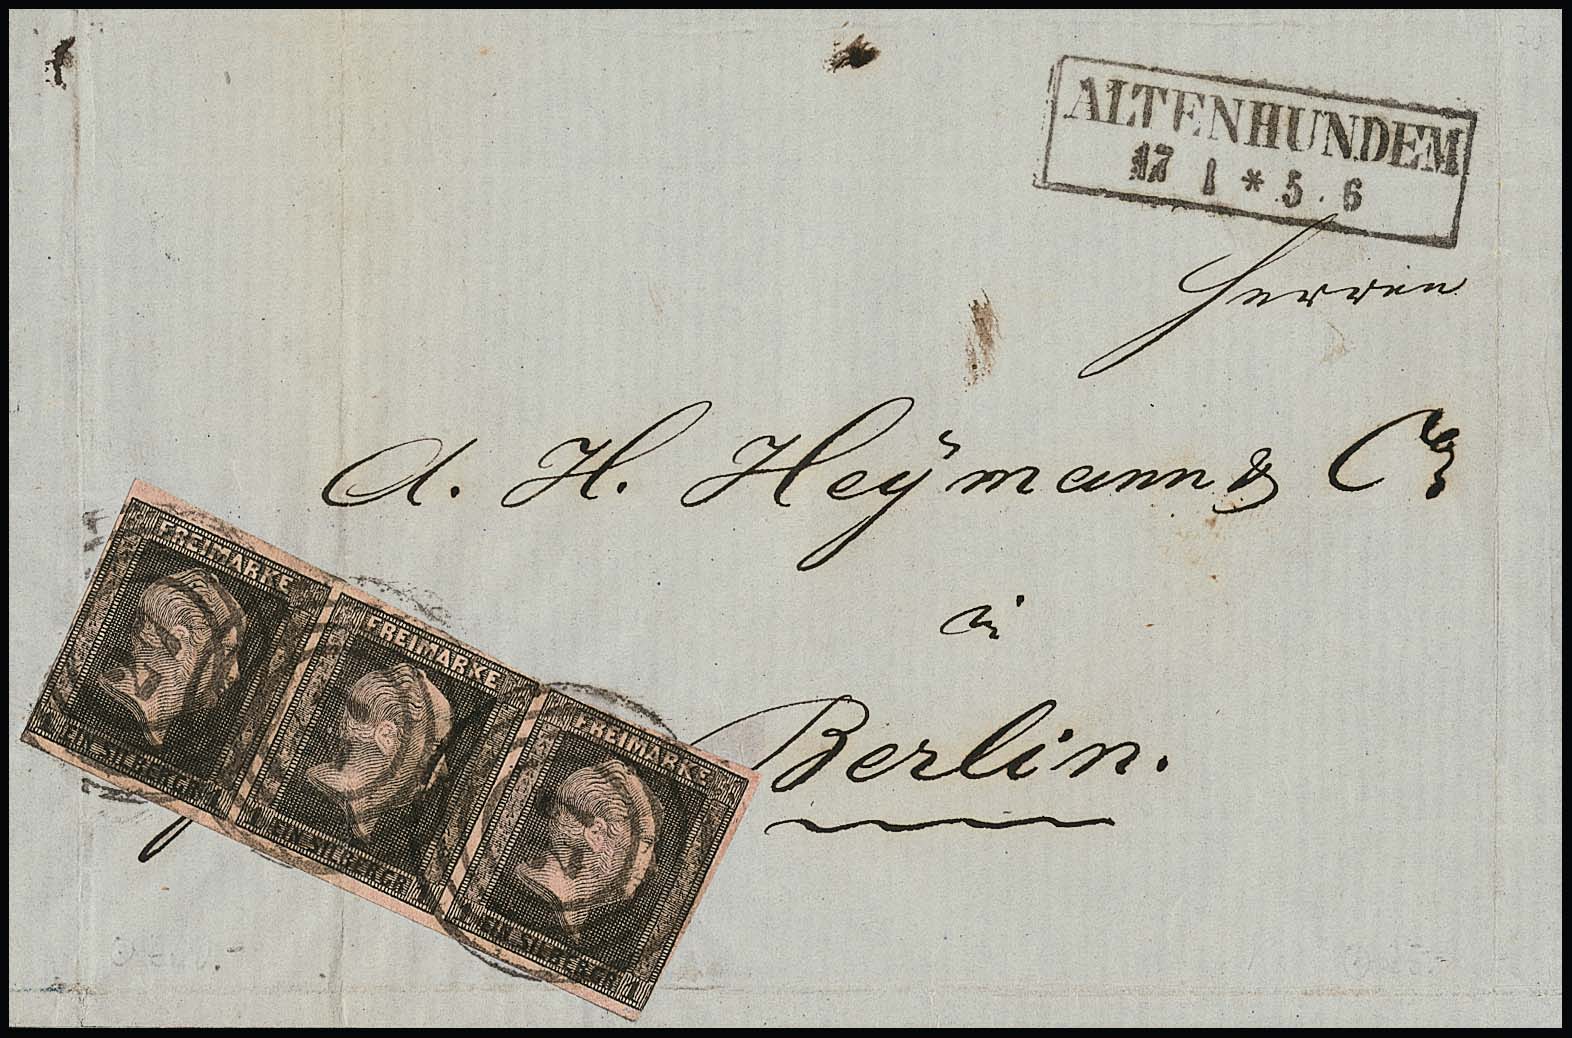 ALTENHUNDEM
17 1 * 5. 6
Herren
A. H. Heÿmann & Co
in
Berlin.
FREIMARKE
1 EIN SILBERGR. 1
FREIMARKE
1 EIN SILBERGR. 1
FREIMARKE
1 EIN SILBERGR. 1